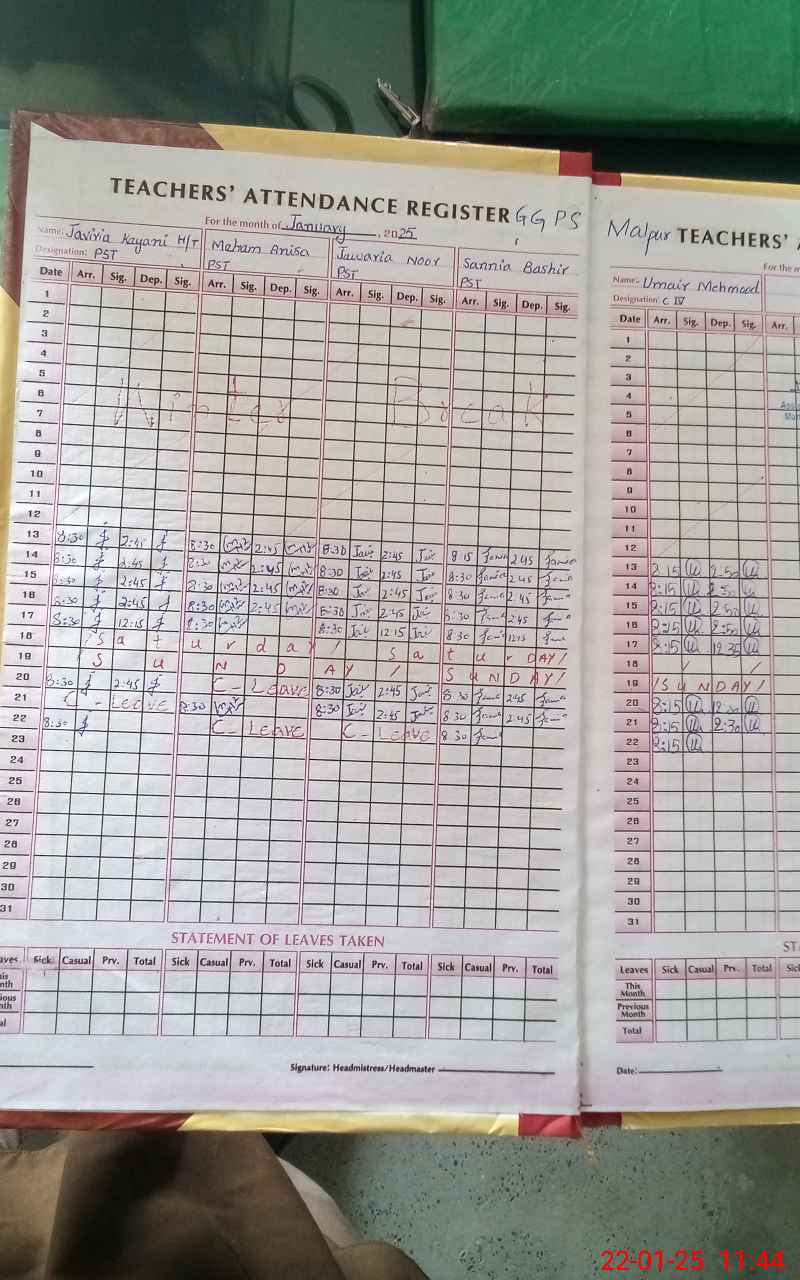 TEACHERS' ATTENDANCE REGISTER GGPS
For the month of January, 2025
Name: Javiria Kayani H/T Maham Anisa Jawaria Noor Sannia Bashir
Designation: PST PST PST PST
Date Arr. Sig. Dep. Sig. Arr. Sig. Dep. Sig. Arr. Sig. Dep. Sig. Arr. Sig. Dep. Sig.
1
2
3
4
5
6
7
Winter Break
8
9
10
11
12
13 8:30 2:45 8:30 2:45 8:30 2:45 8 15 2 45
14 8:30 2:45 8:30 2:45 8:30 2:45 8:30 2 45
15 8:30 2:45 8:30 2:45 8:30 2:45 8:30 2 45
16 8:30 2:45 8:30 2:45 8:30 2:45 8:30 2:45
17 8:30 12:15 8:30 8:30 12:15 8:30 12:15
18 / Saturday / Saturday /
19 SUNDAY / SUNDAY /
20 8:30 2:45 C-Leave 8:30 2:45 8 30 2:45
21 C-Leave 8:30 8:30 2:45 8 30 2:45
22 8:30 C-Leave C-Leave 8 30
23
24
25
26
27
28
29
30
31
STATEMENT OF LEAVES TAKEN
Sick Casual Prv. Total Sick Casual Prv. Total Sick Casual Prv. Total Sick Casual Prv. Total
Signature: Headmistress/Headmaster
Malpur TEACHERS'
Name:- Umair Mehmood
Designation: C IV
Date Arr. Sig. Dep. Sig. Arr.
1
2
3
4
5
6
7
8
9
10
11
12
13 2:50
14 8:15
15 8:15 2:50
16 8:15 2:50
17 8:15 12 35
18 / /
19 / SUNDAY /
20 8:15
21 8:15 2:30
22 8:15
23
24
25
26
27
28
29
30
31
Leaves Sick Casual Prv. Total Sick
This Month
Previous Month
Total
Date:
22-01-25 11:44